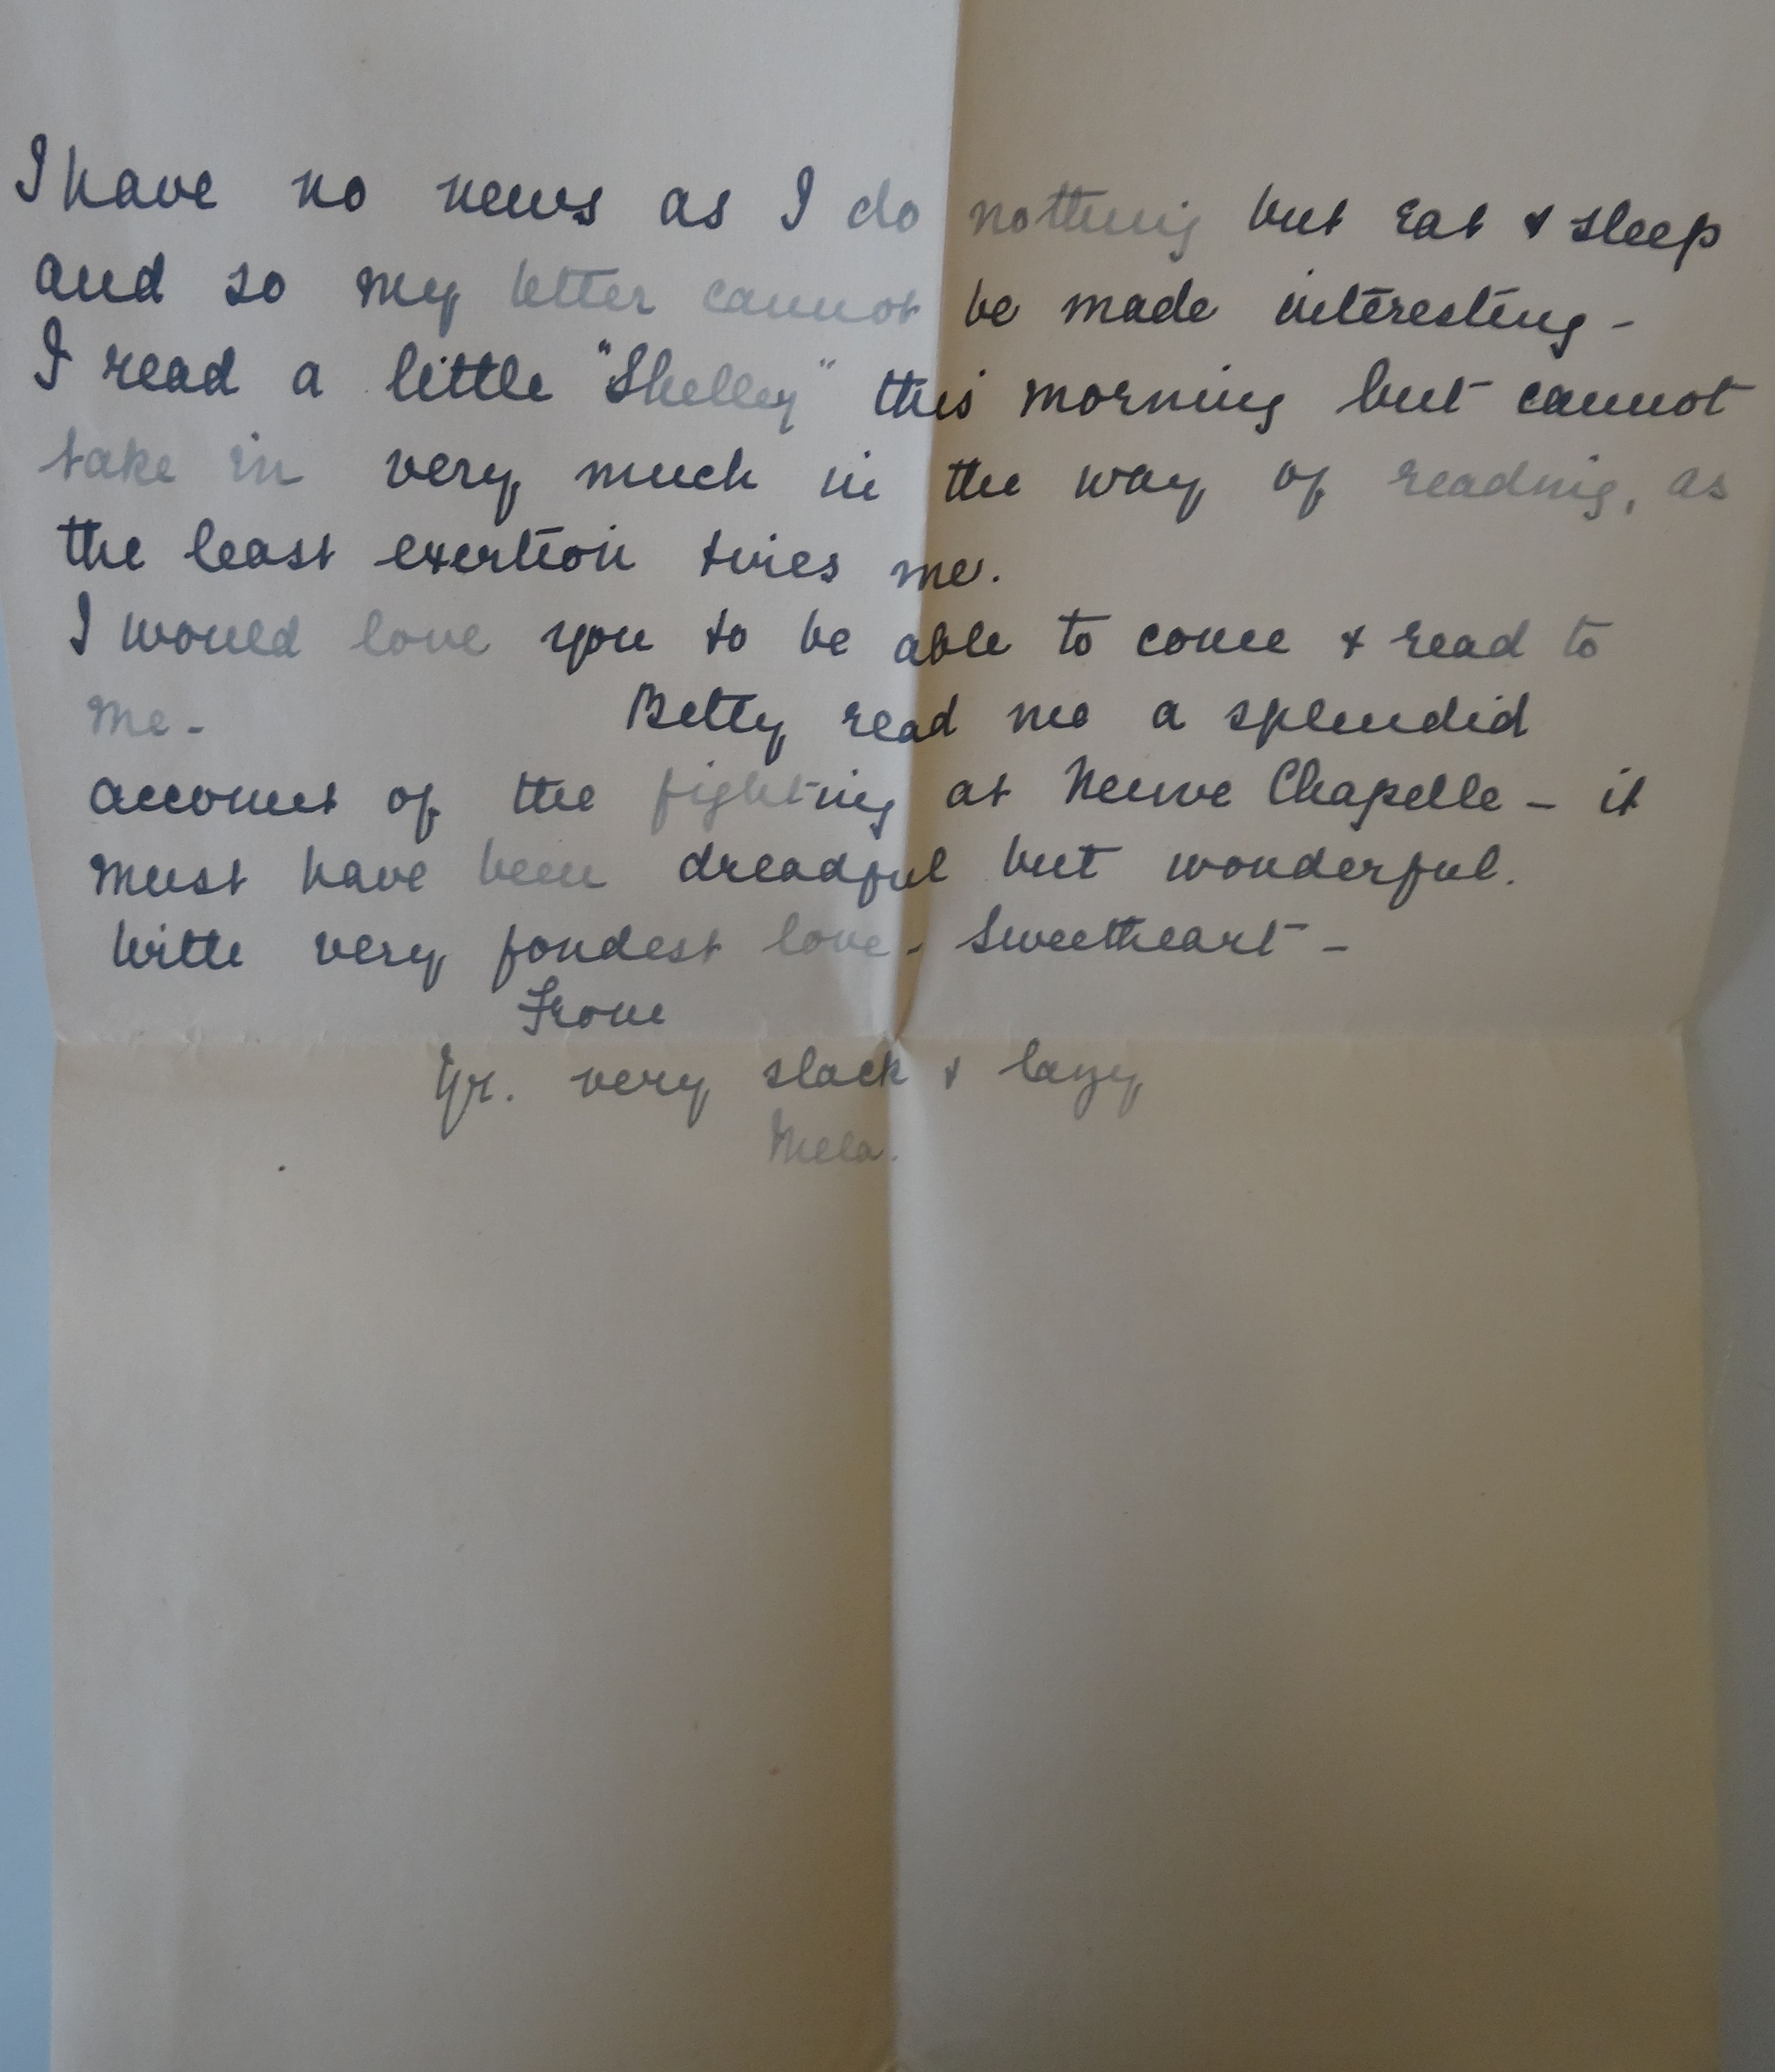 I have no news as I do nothing but eat & sleep
and so my letter cannot be made interesting -
I read a little "Shelley" this morning but cannot
take in very much in the way of reading, as
the least exertion tires me.
I would love you to be able to come & read to
me - Betty read me a splendid
account of the fighting at Neuve Chapelle - it
must have been dreadful but wonderful.
With very fondest love - Sweetheart -
From
Yr. very slack & lazy